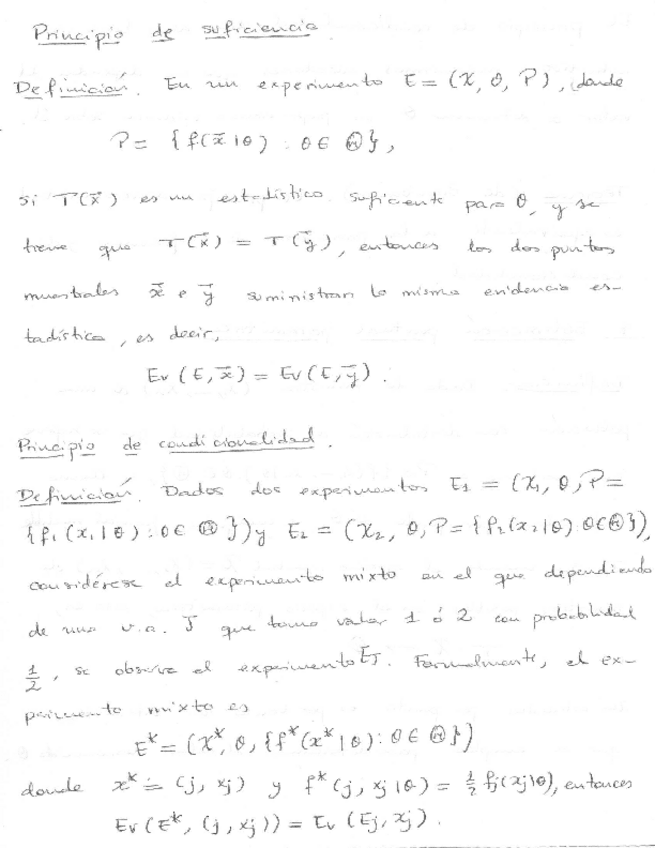 Principio de suficiencia.
Definición. En un experimento E = (X, θ, P), donde
P = {f(x⃗ | θ) : θ ∈ Θ},
si T(x⃗) es un estadístico suficiente para θ, y se
tiene que T(x⃗) = T(y⃗), entonces los dos puntos
muestrales x⃗ e y⃗ suministran la misma evidencia es-
tadística, es decir,
Ev(E, x⃗) = Ev(E, y⃗).
Principio de condicionalidad.
Definición. Dados dos experimentos E₁ = (X₁, θ, P =
{f₁(x₁ | θ) : θ ∈ Θ}) y E₂ = (X₂, θ, P = {f₂(x₂ | θ) θ ∈ Θ}),
considérese el experimento mixto en el que dependiendo
de una v.a. J que toma valor 1 ó 2 con probabilidad
1/2, se observa el experimento E_J. Formalmente, el ex-
perimento mixto es
E* = (X*, θ, {f*(x* | θ) : θ ∈ Θ})
donde x* = (j, xⱼ) y f*(j, xⱼ | θ) = 1/2 fⱼ(xⱼ | θ), entonces
Ev(E*, (j, xⱼ)) = Ev(Eⱼ, xⱼ).